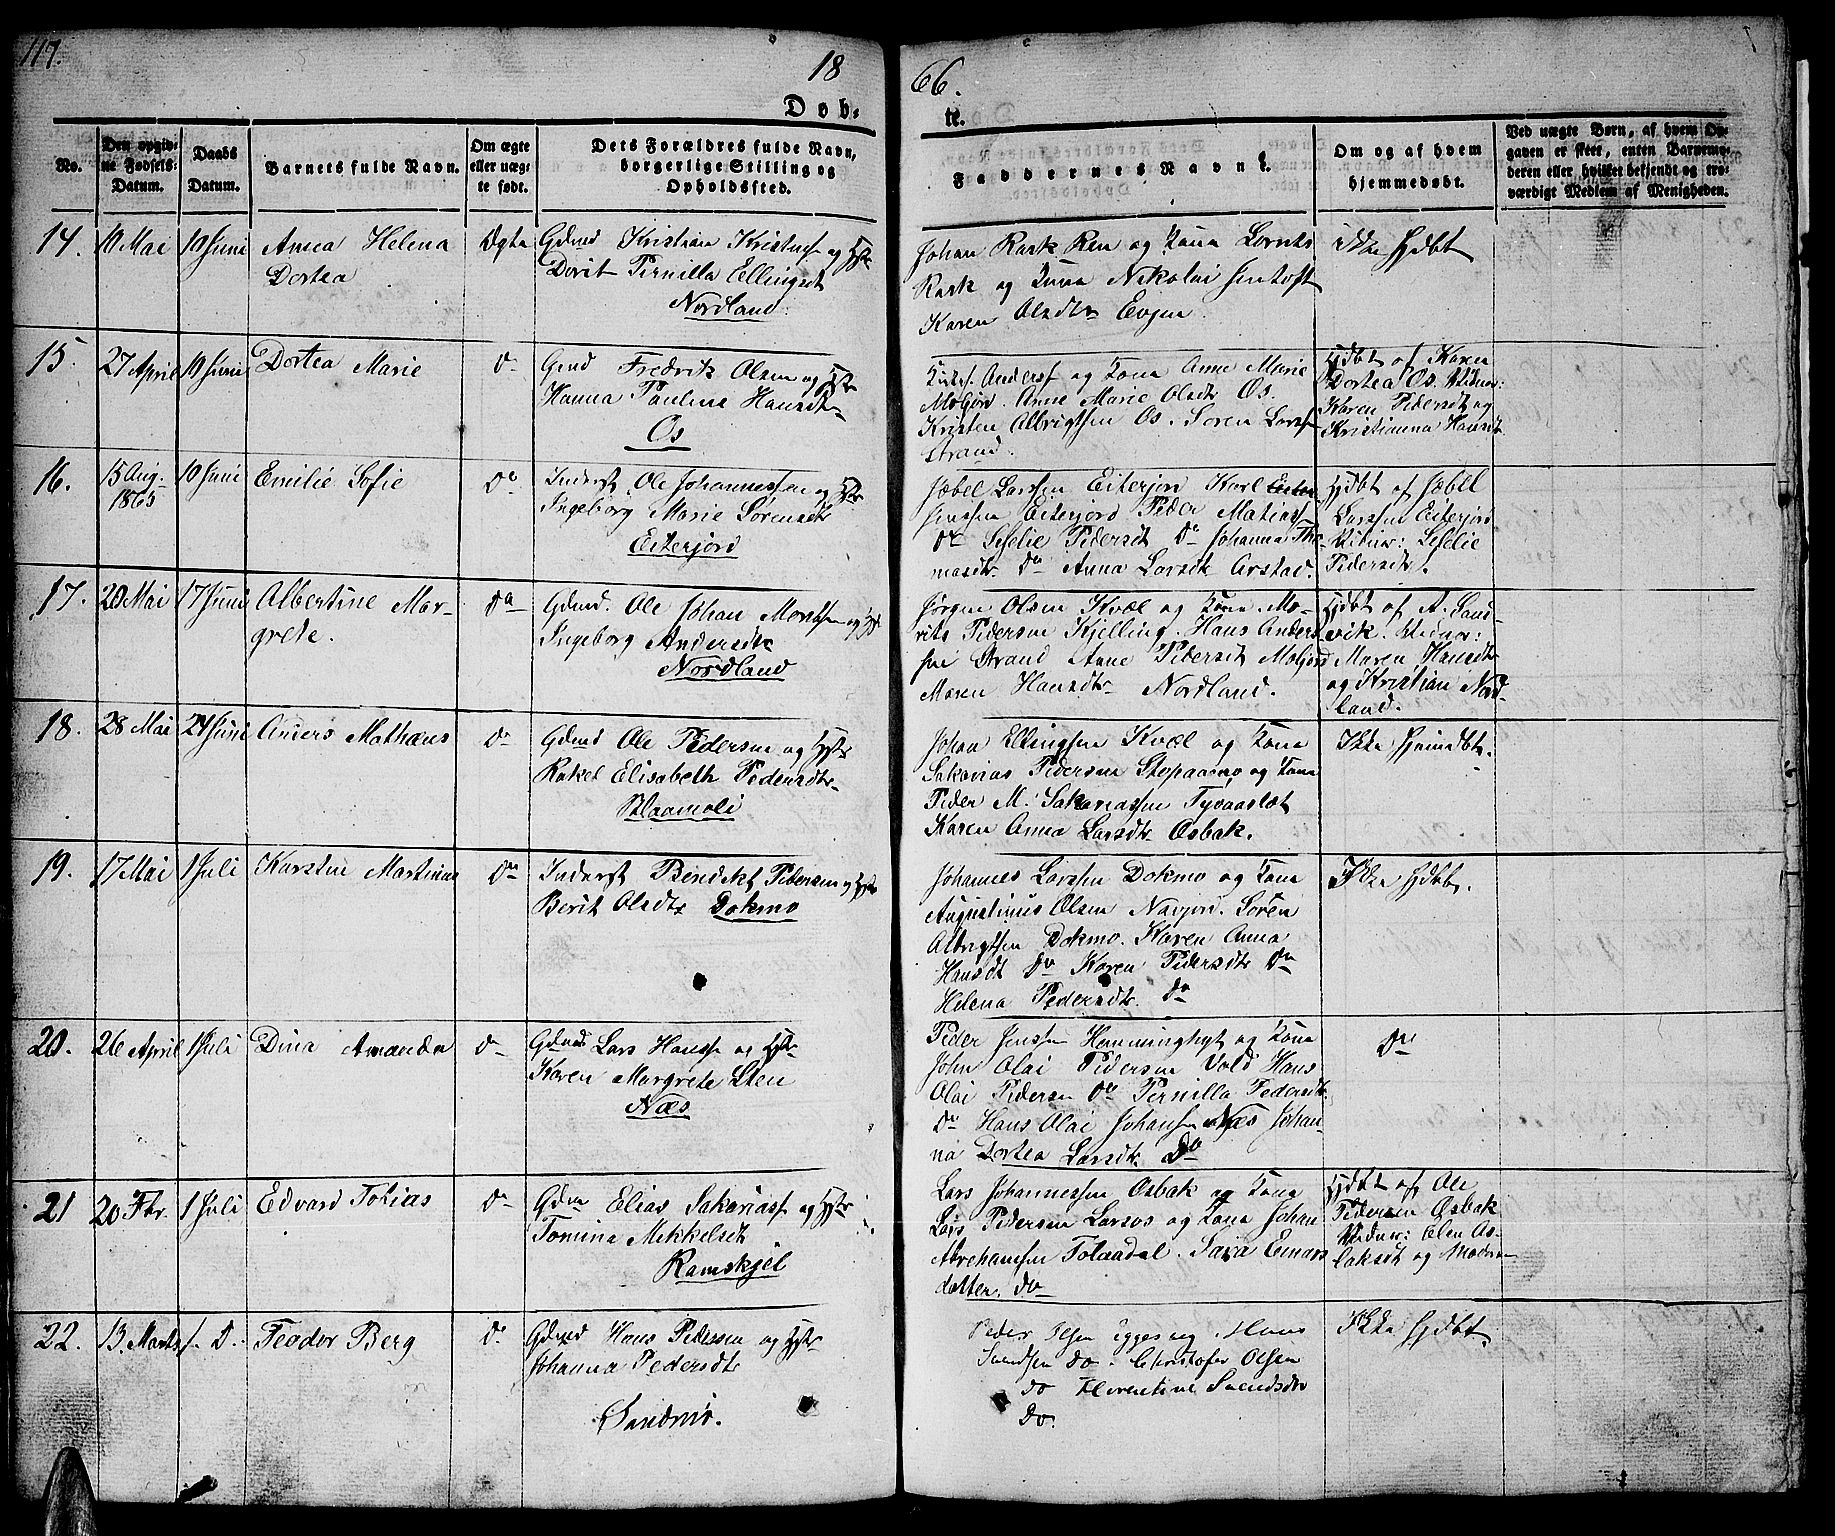 117.
18
66.
Døb-
te.
No.
Den opgiv-
ne Fødsels-
Datum.
Daabs
Datum.
Barnets fulde Navn.
Om ægte
eller uæg-
te født.
Dets Forældres fulde Navn,
borgerlige Stilling og
Opholdsfted.
Faddernes Navne.
Om og af hvem
hjemmedøbt.
Ved uægte Børn, af hvem Op-
gaven er sket, enten Barnemo-
deren eller hvilket bekjendt og tro-
værdigt Medlem af Menigheden.
14.
10 Mai
10 Juni
Anna Helena
Dortea
Ægte
Gdmd Kristian Kristens og Hstr
Dorit Pernilla Ellingsdt
Nordland.
Johan Rask Ren og Kona Lornts
Rask og Kona Nikolai Jentoft
Karen Olsdtr Evjen
ikke Hjdbt
15.
27 April
10 Juni
Dortea Marie
Do
Gmd Fredrik Olsen og Hstr
Hanna Paulina Hansdtr
Os
Anders og Kona Anne Marie
Moljord. Anne Marie Olsdtr Os.
Kristen Albrigtsen Os. Søren Larss
Strand.
Hjdbt af Karen
Dortea Os. Vidner:
Karen Pedersdt og
Kristianna Hansdt
16.
15 Aug.
1865
10 Juni
Emilie Sofie
Do
Inderst Ole Johannessen og Hstr
Ingeborg Marie Sørensdtr
Eiterjord
Jæbel Larssen Eiterjord Karl Eiter-
Jenssen Eiterjord Peder Matiass
Do Sefelie Pedersdt Do Johanna Tho-
masdtr. Do Anna Larsdtr Arstad.
Hjdbt af Jæbel
Larssen Eiterjord
Vidner: Sefelie
Pedersdtr.
17.
20 Mai
17 Juni
Albertine Mar-
grete.
Do
Gdmd. Ole Johan Moritssen og Hstr
Ingeborg Andersdtr
Nordland
Jørgen Olsen Kvæl og Kona Mo-
rits Pedersen Kjelling. Hans Anders-
sen Strand Anne Pedersdt Moljord
Maren Hansdtr Nordland.
Hjdbt af A. Sand-
vik. Vidner:
Maren Hansdtr
og Kristian Nord-
land.
18.
28 Mai
24 Juni
Anders Mathæus
Do
Gdmd Ole Pedersen og Hstr
Rakel Elisabeth Pedersdtr
Staamoli
Johan Ellingsen Kvæl og Kona
Sakarias Pedersen Stopaamo og Kona
Peder M. Sakariassen Tvvaaslæt
Karen Anna Larsdtr Osbak.
Ikke Hjemdbt.
19.
17 Mai
1 Juli
Karsten Martinus
Do
Inderst Bendikt Pedersen og Hstr
Berit Olsdtr Dokmo
Johannes Larssen Dokmo og Kona
Augustinus Olsen Navjord. Søren
Albrigtsen Dokmo. Karen Anna
Hansdt Do Karen Pedersdtr Do
Helena Pedersdtr. Do
Ikke Hjdbt.
20.
26 April
1 Juli
Dina Amanda
Do
Gdmd Lars Hanss og Hstr
Karen Margrete Sten
Næs
Peder Jenssen Hemminghyt og Kona
John Olai Pedersen Vold Hans
Olai Pedersen Do Pernilla Pedersdtr.
Do Hans Olai Johansen Næs Johan-
na Dortea Larsdtr. Do
Do
21
20 Fbr.
1 Juli
Edvard Tobias
Do
Gdm Elias Sakariass og Hstr
Tomina Mikkelsdt
Ramskjel
Lars Johannessen Osbak og Kona
Lars Pedersen Larsos og Kona Johan
Abrehamsen Tolaadal. Sara Enars
datter. Do
Hjdbt af Ole
Pedersen Osbak
Vidner: Olen As-
laksdt og Moderen
22.
13. Marts
s. D.
Teodor Berg
Do
Gdmd Hans Pedersen og Hstr
Johanna Pedersdtr
Sandmo.
Peder Olsen Eggesvig. Hans
Svendsen Do. Christofer Olsen
Do Florentine Svendsdtr
Do.
Ikke Hjdbt.